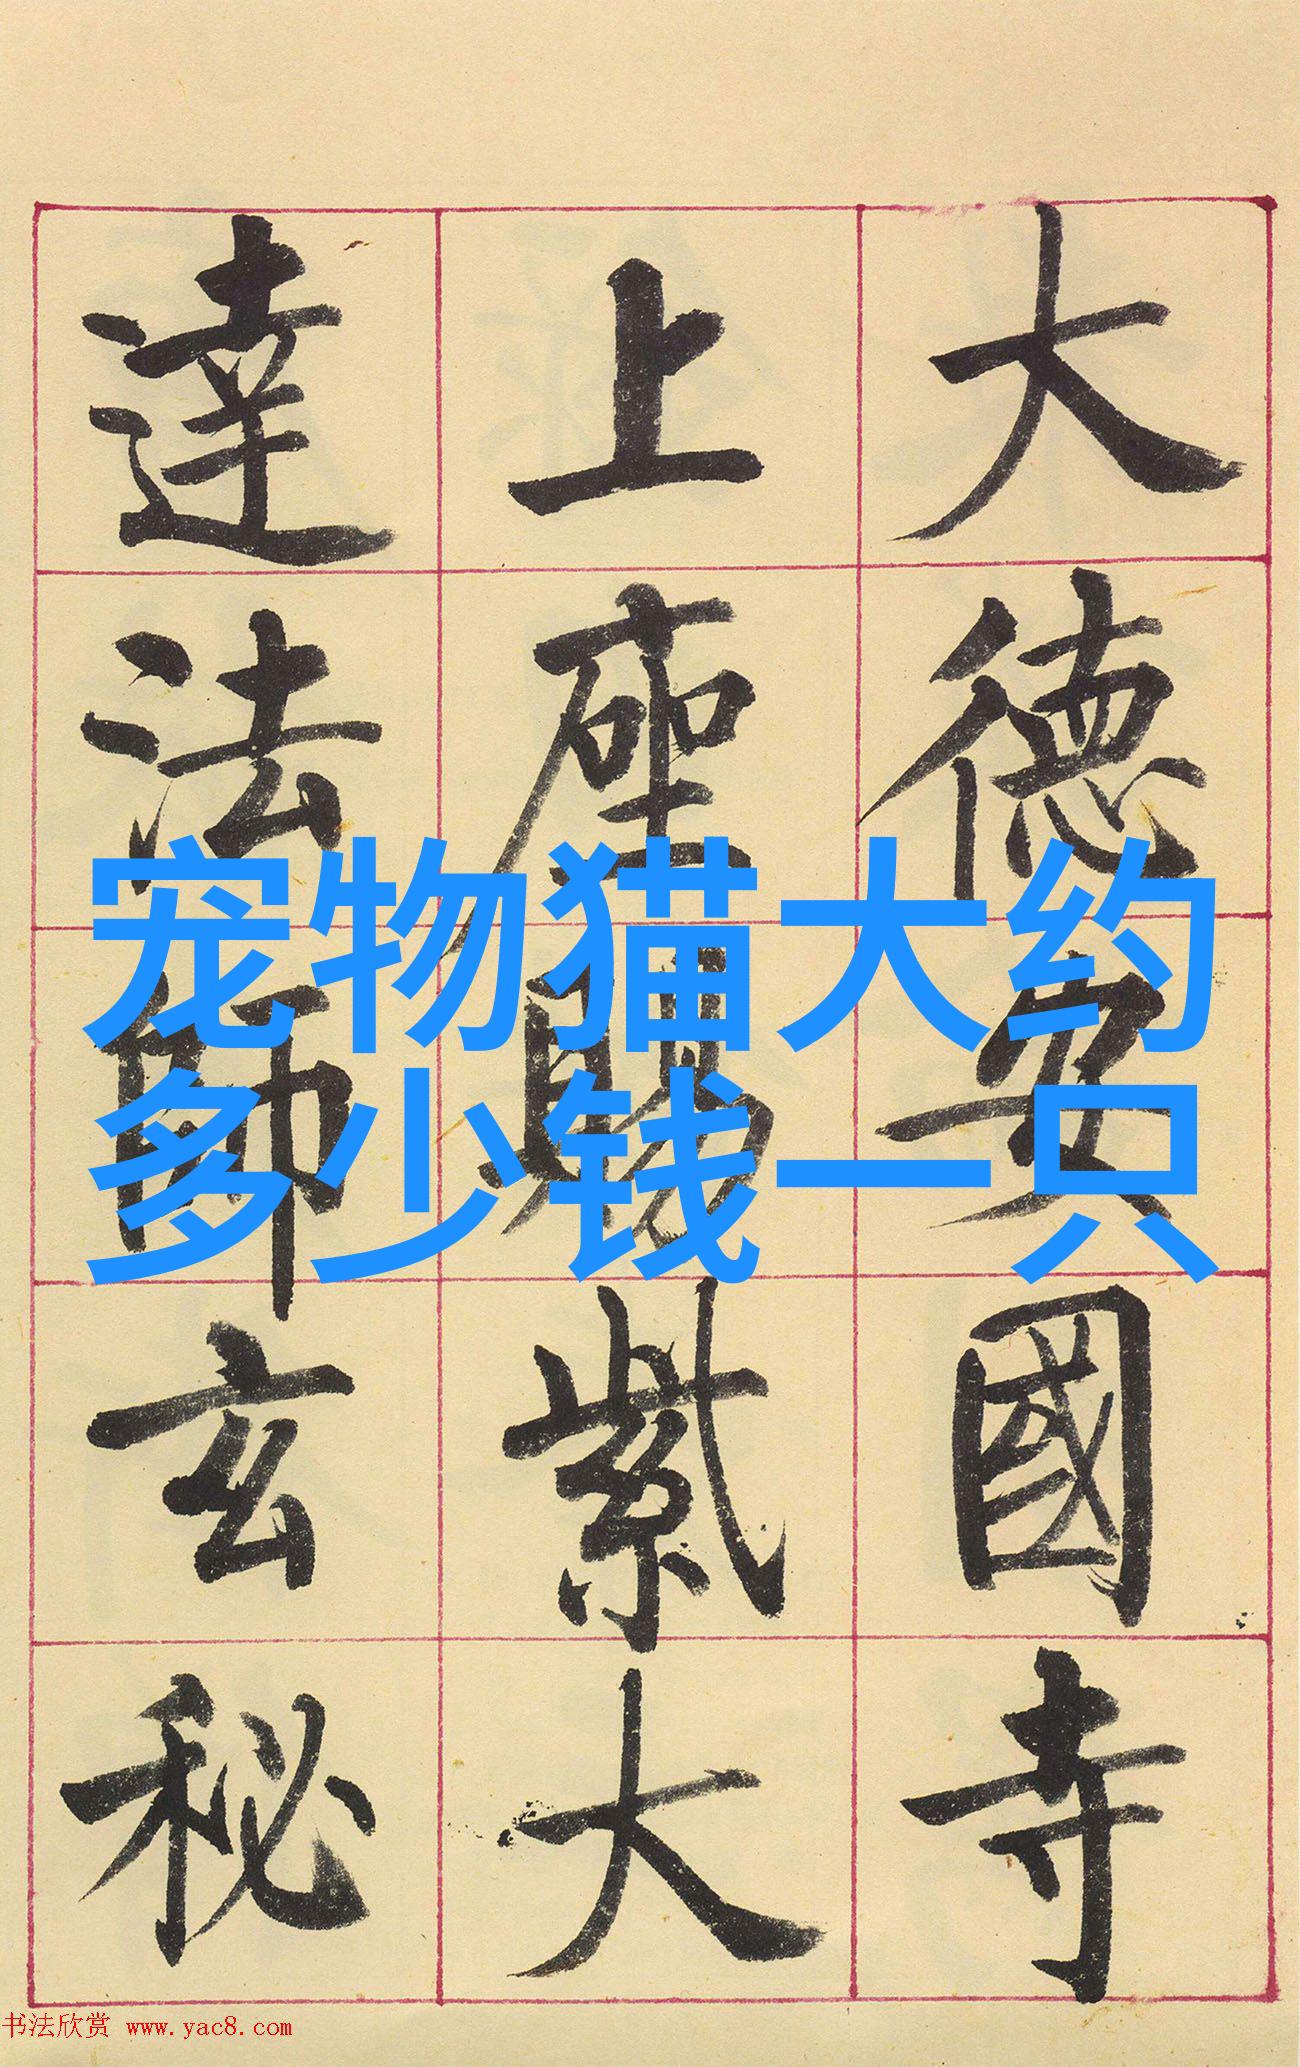 大德安國寺
上座賜紫大
達法師玄秘
宠物猫大约
多少钱一只
书法欣赏 www.yac8.com